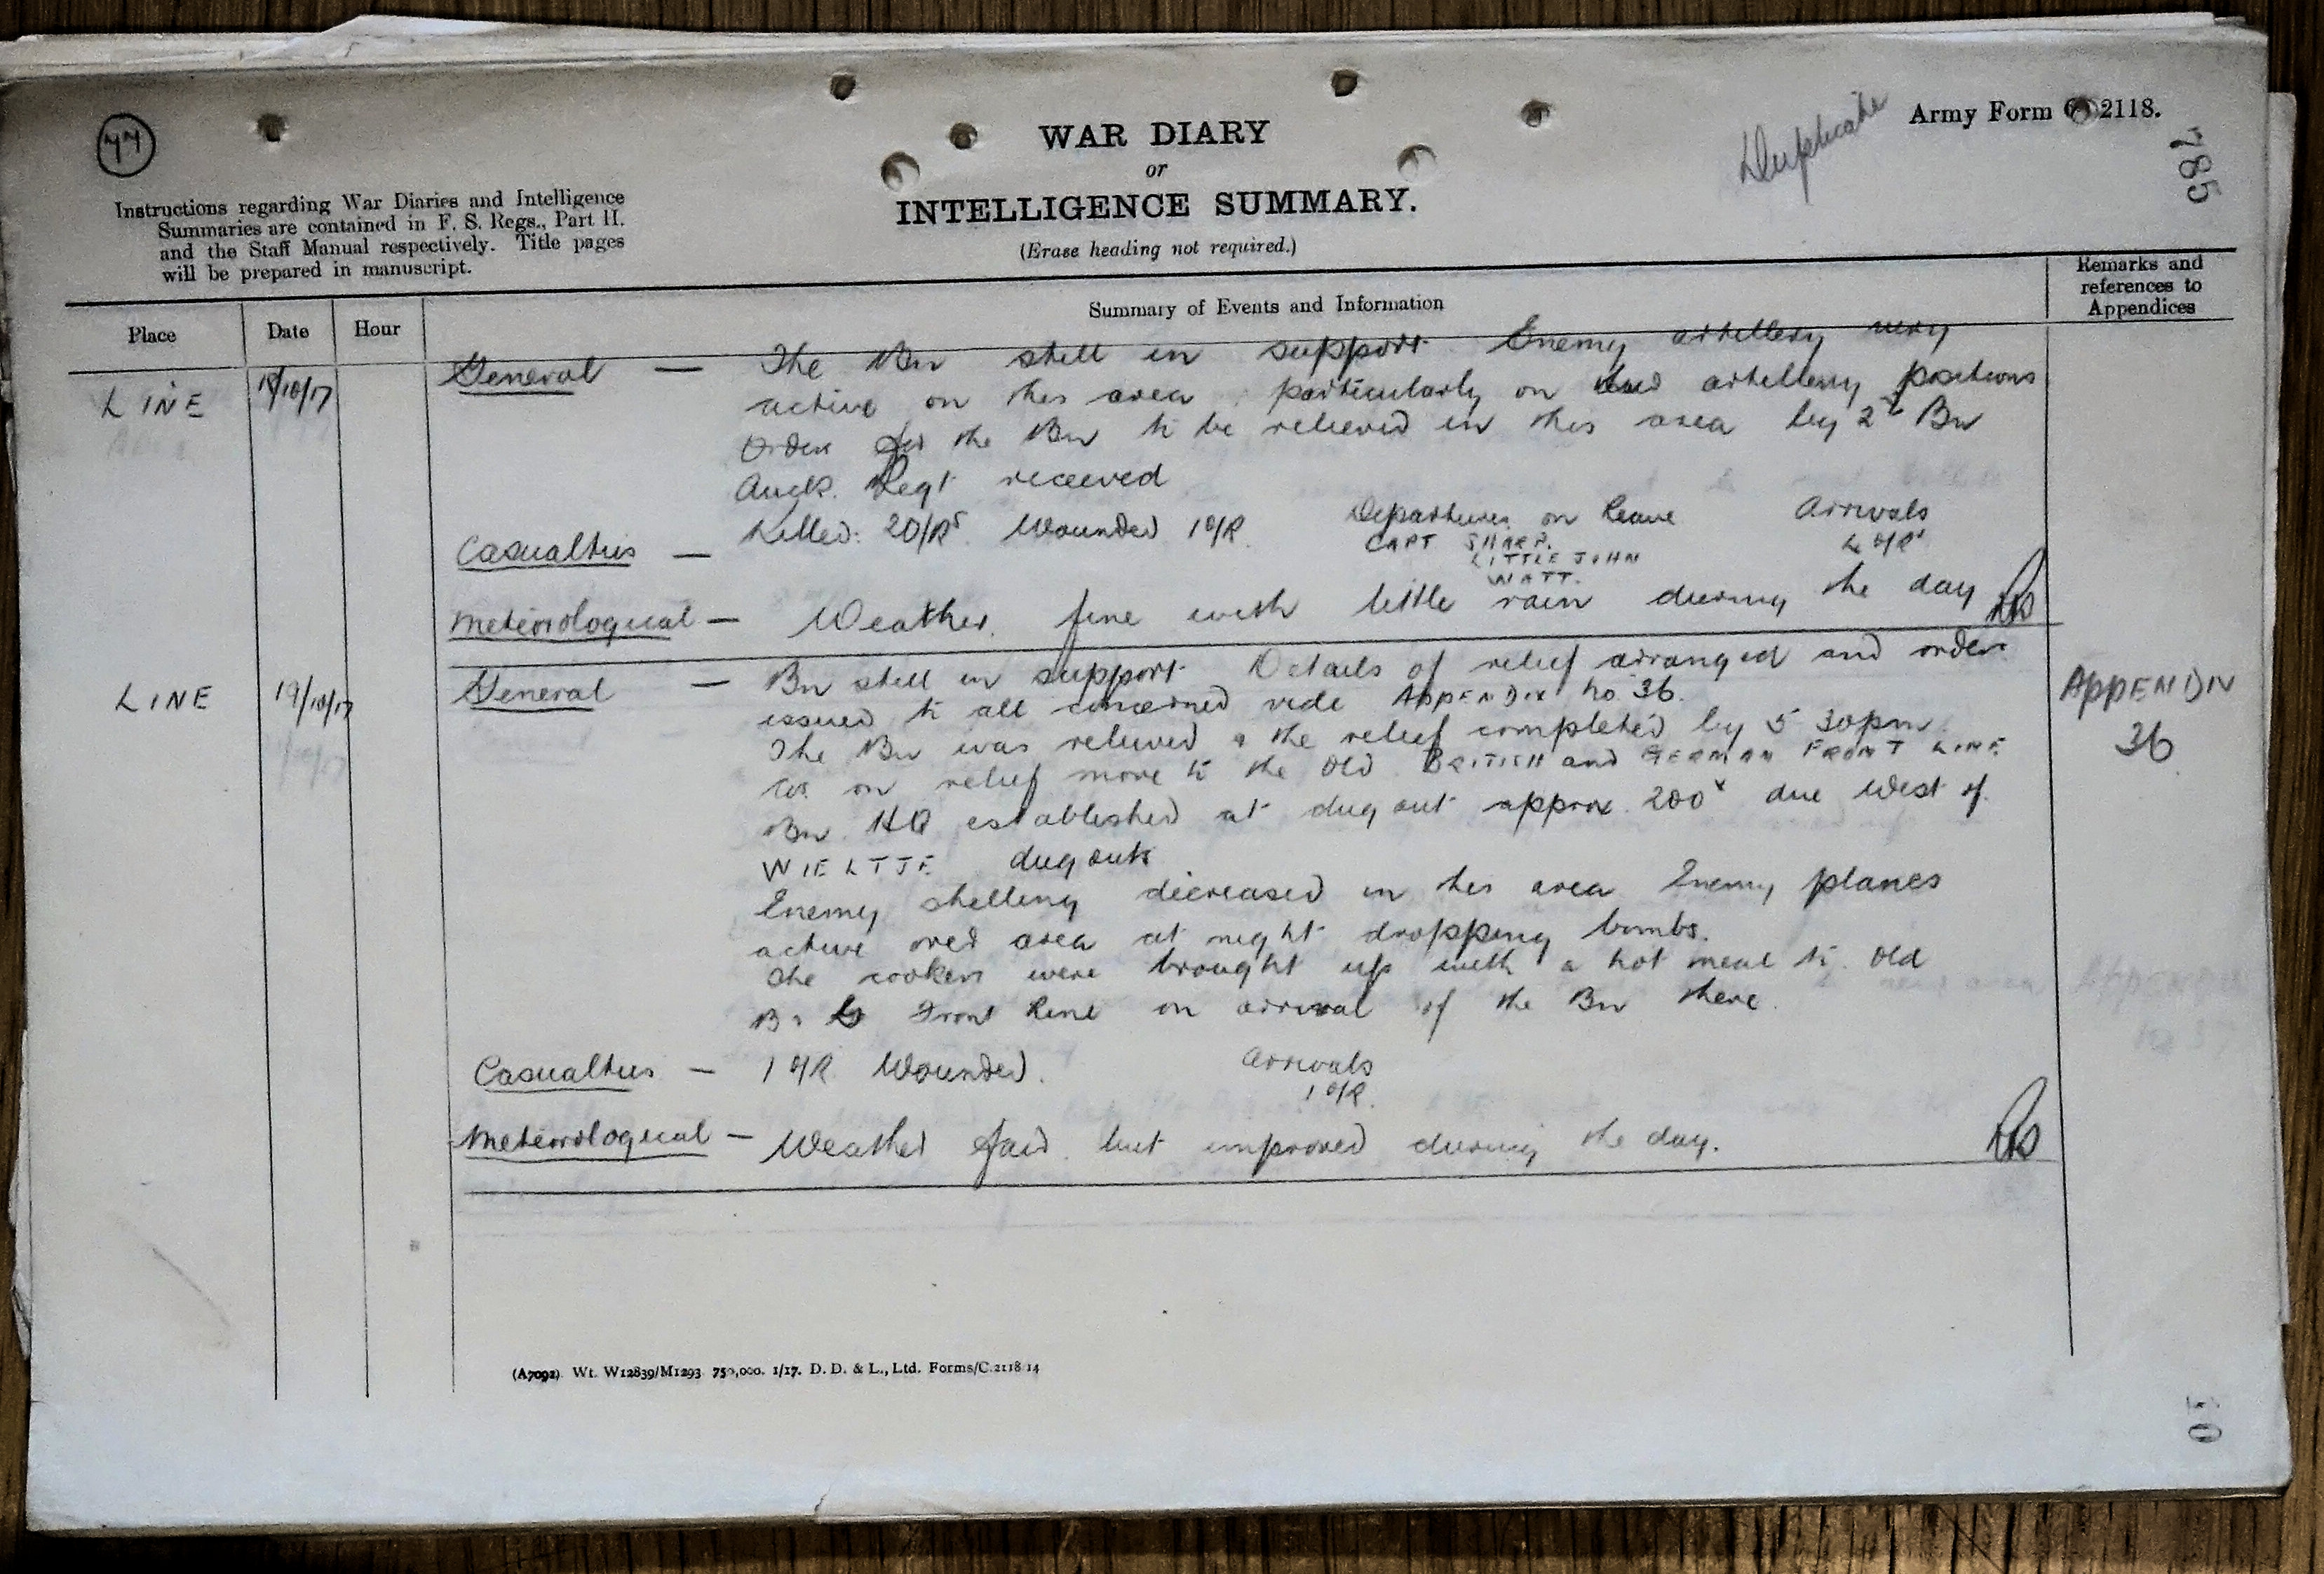 44
Duplicate
Army Form C. 2118.
785
WAR DIARY
or
INTELLIGENCE SUMMARY.
(Erase heading not required.)
Instructions regarding War Diaries and Intelligence
Summaries are contained in F. S. Regs., Part II.
and the Staff Manual respectively. Title pages
will be prepared in manuscript.
Place Date Hour Summary of Events and Information Remarks and references to Appendices
LINE 18/10/17 General — The Bn still in support Enemy artillery very
active on this area particularly on artillery positions
Orders for the Bn to be relieved in this area by 2nd Bn
Auck. Regt received
Casualties — Killed: 2 O/Rs Wounded 1 O/R Departures on Leave Arrivals
CAPT SHARP. 4 O/Rs
LITTLEJOHN
WATT.
Meteorological — Weather fine with little rain during the day
LINE 19/10/17 General — Bn still in support Details of relief arranged and orders
issued to all concerned vide APPENDIX No. 36. APPENDIX
The Bn was relieved & the relief completed by 5 30pm. 36
Cos. on relief move to the Old BRITISH and GERMAN FRONT LINE
Bn HQ established at dug out approx 200x due West of
WIELTJE dug outs
Enemy shelling decreased in this area Enemy planes
active over area at night dropping bombs.
The cookers were brought up with a hot meal to Old
Front Line on arrival of the Bn there.
Casualties — 1 O/R Wounded. Arrivals
1 O/R.
Meteorological — Weather fair but improved during the day.
(A7092) Wt. W12839/M1293 750,000. 1/17. D. D. & L., Ltd. Forms/C.2118/14